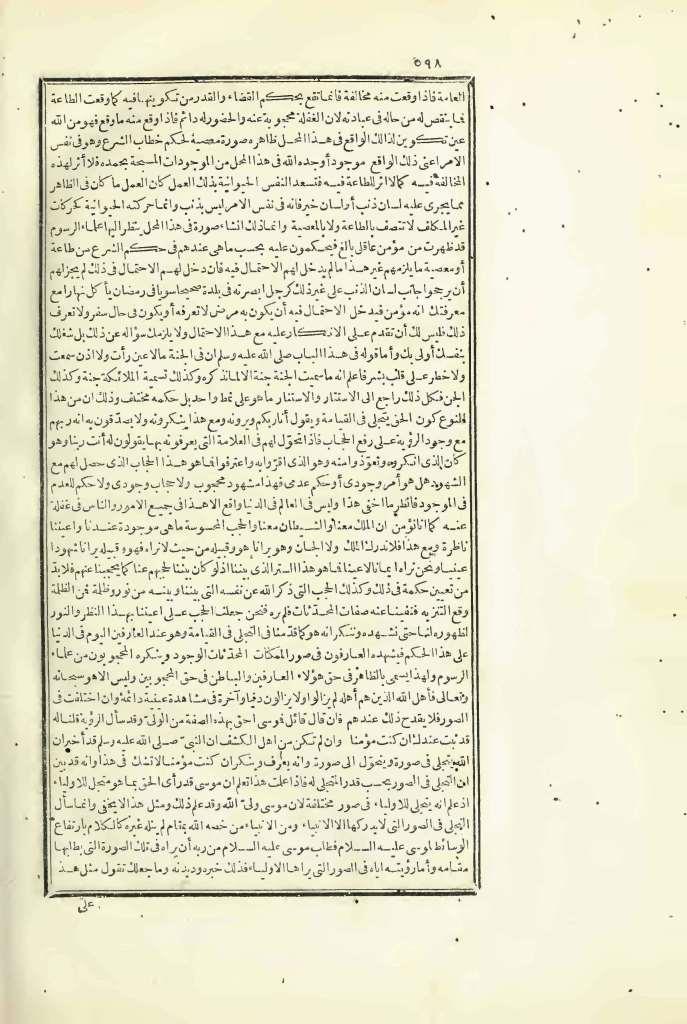 ٥٩٨
العامة فاذا وقعت منه مخالفة فانما تقع بحكم القضاء والقدر من تكوينها فيه كما وقعت الطاعة
فما ينقص له من حاله فى عبادته لان الغفلة محجوبة عنه والحضور له دائم فاذا وقع منه ما وقع فهو من الله
عين تكوين لذلك الواقع فى هذا المحل ظاهره صورة معصية لحكم خطاب الشرع وهو فى نفس
الامر اعنى ذلك الواقع موجود أوجده الله فى هذا المحل من الموجودات المسبحة بحمده فلا أثر لهذه
المخالفة فيه كما لا اثر للطاعة فيه فتسعد النفس الحيوانية بذلك العمل كان العمل ما كان فى الظاهر
مما يجرى عليه لسان ذنب أو لسان خير فانه فى نفس الامر ليس بذنب وانما حركته الحيوانية كحركات
غير المكلف لا تتصف بالطاعة ولا بالمعصية وانما ذلك انشاء صورة فى هذا المحل ينظر اليها علماء الرسوم
قد ظهرت من مؤمن عاقل بالغ فيحكمون عليه بحسب ما هى عندهم فى حكم الشرع من طاعة
أو معصية ما يلزمهم غير هذا ما لم يدخل لهم الاحتمال فيه فان دخل لهم الاحتمال فى ذلك لم يجز لهم
أن يرجحوا جانب لسان الذنب على غير ذلك كرجل ابصرته فى بلدة صحيحا سويا فى رمضان يأكل نهارا مع
معرفتك انه مؤمن فيدخل الاحتمال فيه أن يكون به مرض لا تعرفه أو يكون فى حال سفر ولا تعرف
ذلك فليس لك أن تقدم على الانكار عليه مع هذا الاحتمال ولا يلزمك سؤاله عن ذلك بل شغلك
بنفسك أولى بك وأما قوله فى هذا الباب صلى الله عليه وسلم ان فى الجنة ما لا عين رأت ولا اذن سمعت
ولا خطر على قلب بشر فاعلم انه ما سميت الجنة جنة الا لما نذكره وكذلك تسمية الملائكة جنة وكذلك
الجن فكل ذلك راجع الى الاستتار والاستتار ما هو على نمط واحد بل حكمه مختلف وذلك ان من هذا
النوع كون الحق يتجلى فى القيامة ويقول أنا ربكم ويرونه ومع هذا ينكرونه ولا يصدّقون به انه ربهم
مع وجود الرؤية على رفع الحجاب فاذا تحوّل لهم فى العلامة التى يعرفونه بها يقولون له أنت ربنا وهو
كان الذى انكروه وتعوّذوا منه وهو الذى اقرّوا به واعترفوا فما هو هذا الحجاب الذى حصل لهم مع
الشهود هل هو أمر وجودى أو حكم عدمى فهذا مشهود محجوب ولا حجاب وجودى ولا حكم للعدم
فى الموجود فانظر ما اخفى هذا وليس فى العالم فى الدنيا واقع الا هذا فى جميع الامور والناس فى غفلة
عنه كما انا نؤمن ان الملك معنا والشيطان معنا والحجب المحسوسة ما هى موجودة عندنا واعيننا
ناظرة ومع هذا فلا ندرك الملك ولا الجان وهو يرانا هو وقبيله من حيث لا نراه فهو وقبيله يرانا شهودا
عينيا ونحن نراه ايمانا لا عينا فما هو هذا الستر الذى بيننا اذ لو كان بيننا لحجبهم عنا كما يحجبنا عنهم فلا بدّ
من تعيين حكمة فى ذلك وكذلك الحجب التى ذكر الله عن نفسه التى بيننا وبينه من نور وظلمة فمن الظلمة
وقع التنزيه فنفينا عنه صفات المحدثات فلم نره فنحن جعلنا الحجب على اعيننا بهذا النظر والنور
لظهوره لنا حتى نشهده وننكر انه هو كما قدّمنا فى التجلى فى القيامة وهو عند العارفين اليوم فى الدنيا
على هذا الحكم فيشهده العارفون فى صور الممكنات المحدثات الوجود وينكره المحجوبون من علماء
الرسوم ولهذا يسمى بالظاهر فى حق هؤلاء العارفين والباطن فى حق المحجوبين وليس الا هو سبحانه
وتعالى فأهل الله الذين هم أهله لم يزالوا ولا يزالون دنيا وآخرة فى مشاهدة عينية دائمة وان اختلفت فى
الصور فلا يقدح ذلك عندهم فان قال قائل فموسى احق بهذه الصفة من الولىّ وقد سأل الرؤية قلنا له
قد ثبت عندك ان كنت مؤمنا وان لم تكن من اهل الكشف ان النبىّ صلى الله عليه وسلم قد أخبر ان
الله يتجلى فى صورة ويتحوّل الى صورة وانه يعرف وينكر ان كنت مؤمنا لا تشك فى هذا وانه قد بين
ان التجلى فى الصور بحسب قدر المتجلى له فاذا علمت هذا تعلم ان موسى قد رأى الحق بما هو متجل للاولياء
اذ علم انه يتجلى للاولياء فى صور مختلفة لان موسى ولىّ الله وقد علم ذلك ومثل هذا لا يخفى وانما سأل
التجلى فى الصور التى لا يدركها الا الانبياء ومن الانبياء من خصه الله بمقام لم ينله غيره كالكلام بارتفاع
الوسائط لموسى عليه السلام فطلب موسى عليه السلام من ربه أن يراه فى تلك الصورة التى يطلبها
مقامه وأما رؤيته اياه فى الصور التى يراها الاولياء فذلك خبزه وديدنه وما جعلك تقول مثل هذا
على